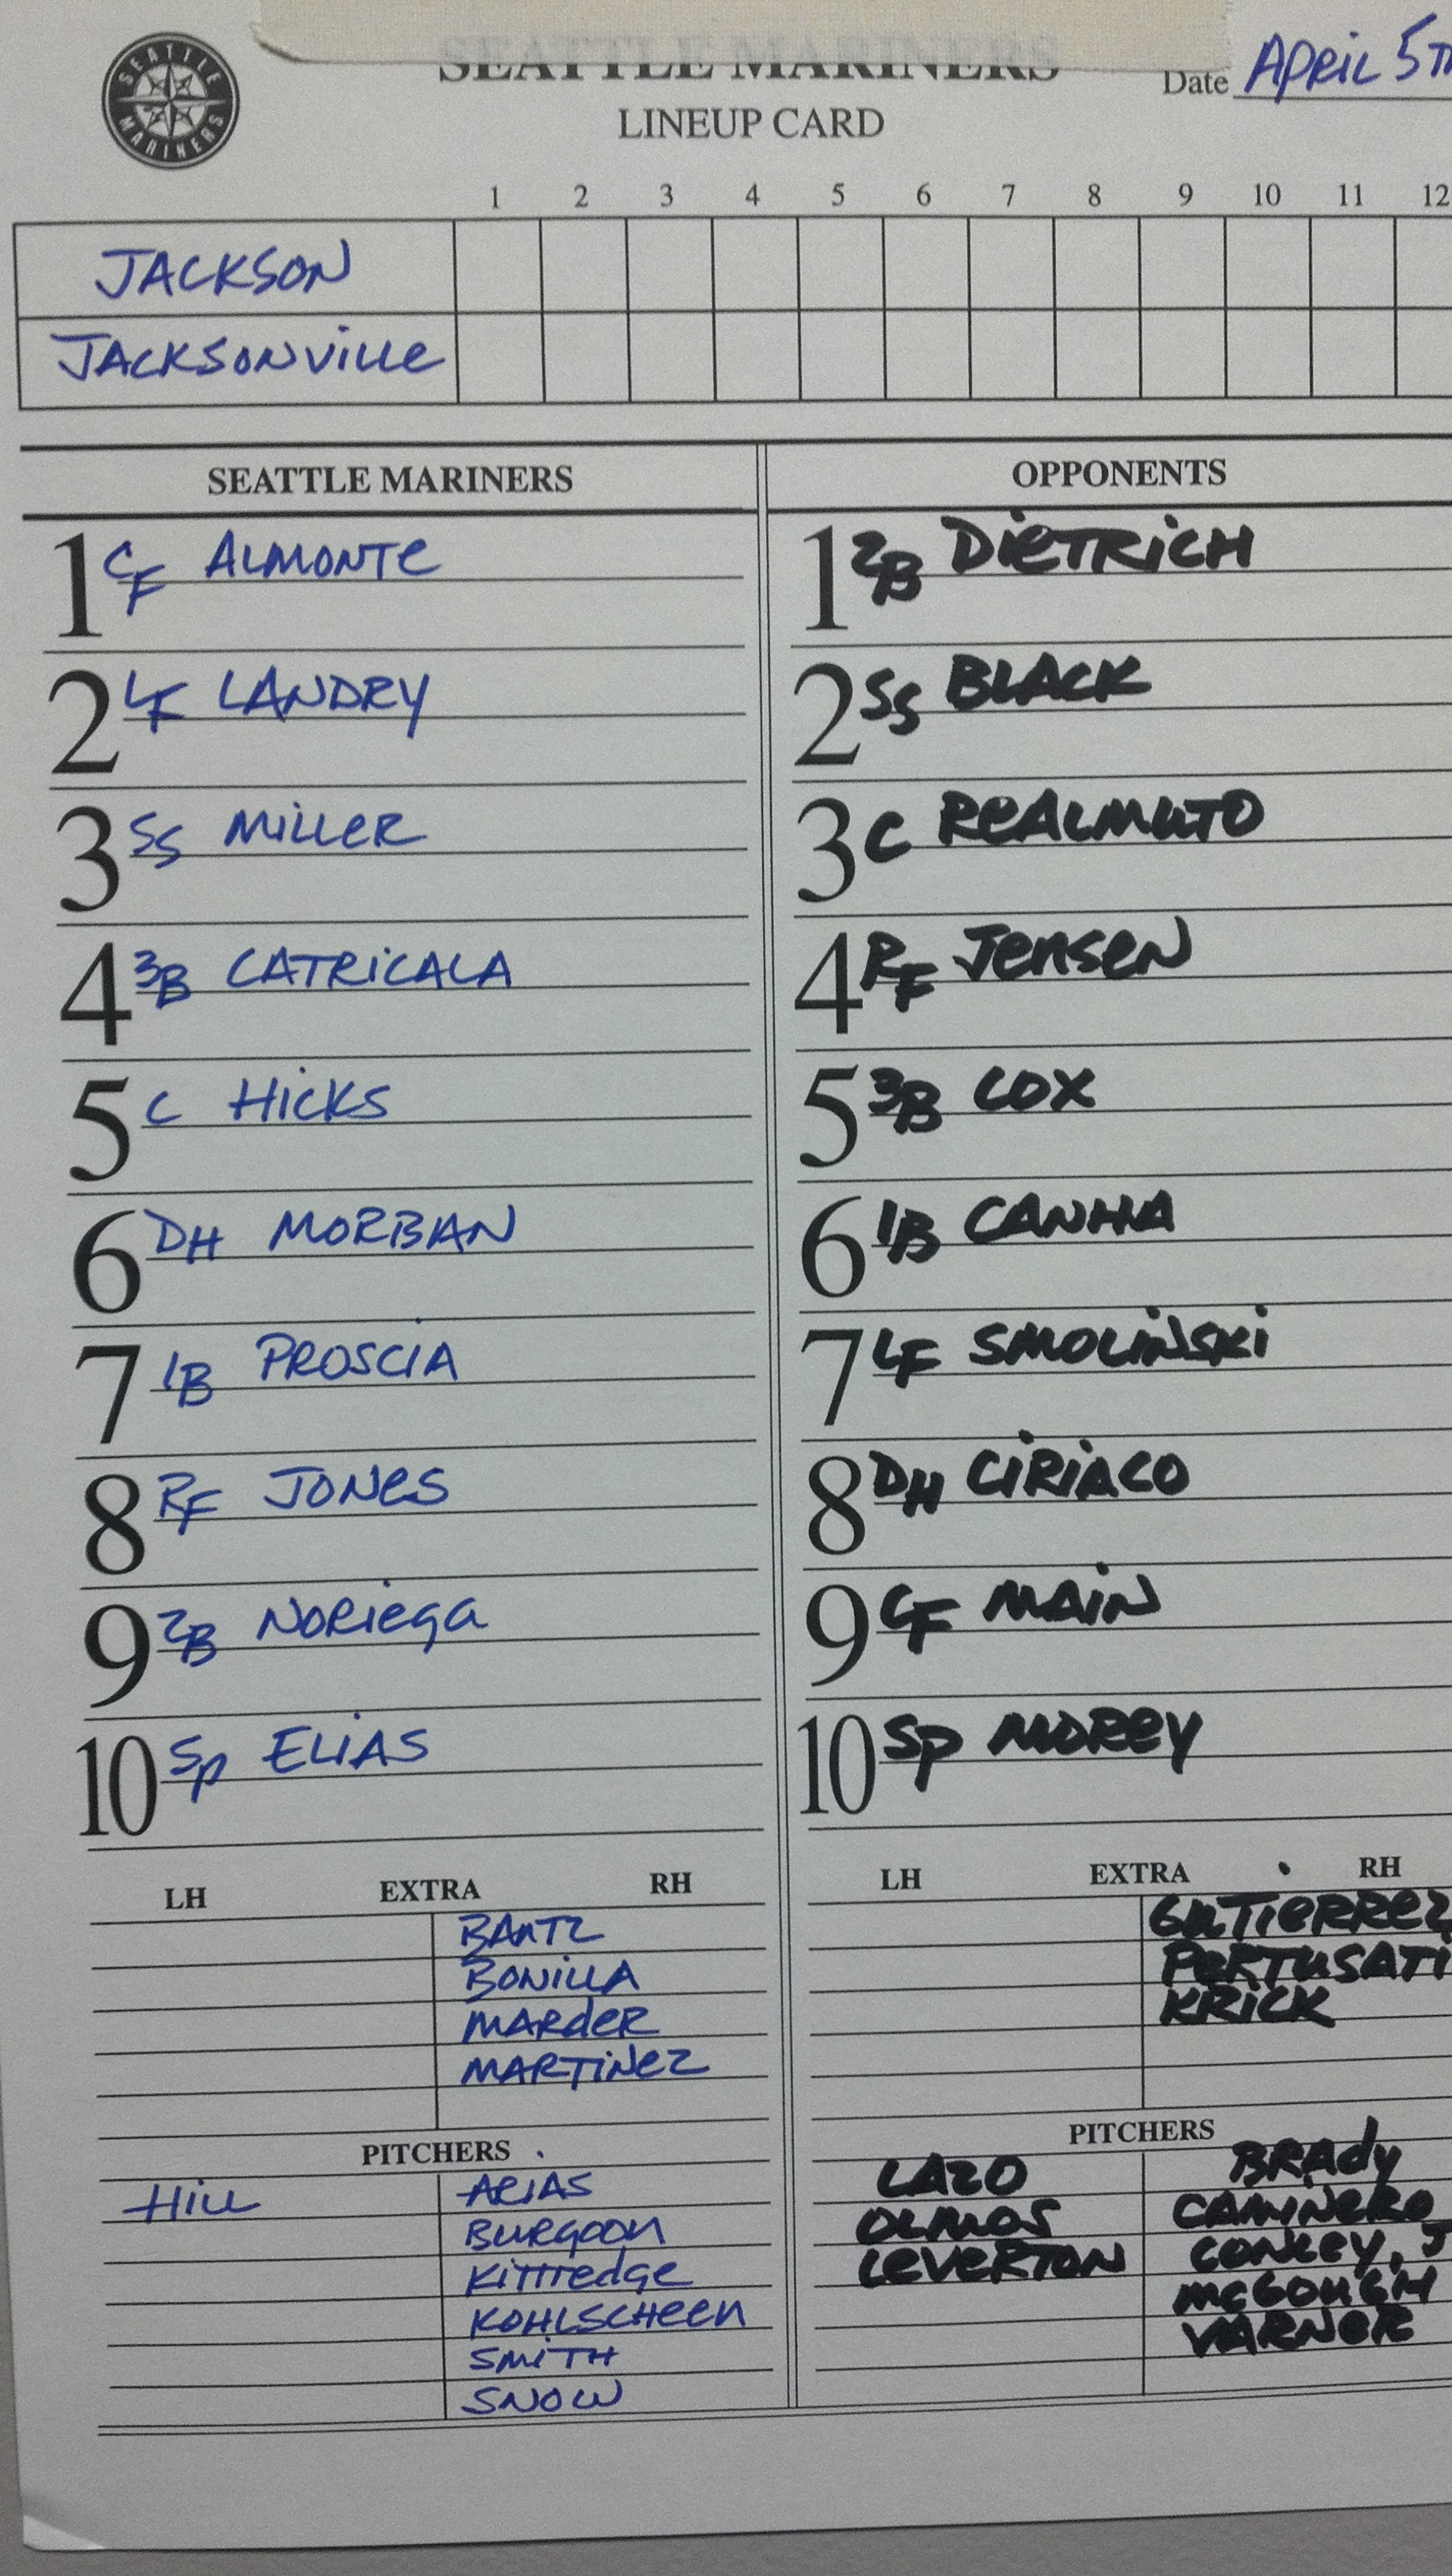 SEATTLE MARINERS
SEATTLE MARINERS Date APRiL 5TH
LINEUP CARD
1 2 3 4 5 6 7 8 9 10 11 12
JACKSON
JACKSONViLLe
SEATTLE MARINERS OPPONENTS
1 CF ALMONTe 1 2B DieTRiCH
2 LF LANDRY 2 SS BLACK
3 SS MiLLeR 3 C ReALMuTO
4 3B CATRiCALA 4 RF JeNSeN
5 C HiCKS 5 3B COX
6 DH MORBAN 6 1B CANHA
7 1B PROSCiA 7 LF SMOLiNSKi
8 RF JONeS 8 DH CiRiACO
9 2B NORiegA 9 CF MAiN
10 SP ELiAS 10 SP MOReY
LH EXTRA RH LH EXTRA RH
BANTZ GuTieRReZ
BONiLLA PeRTuSATi
MARdeR KRiCK
MARTiNeZ
PITCHERS PITCHERS
Hill ARiAS LAZO BRAdy
BuRgOON OLMOS CAMiNeRO
KiTTRedge LeVeRTON CONLeY, J
KOHLSCHeeN McGOuGH
SMiTH VARNeR
SNOW